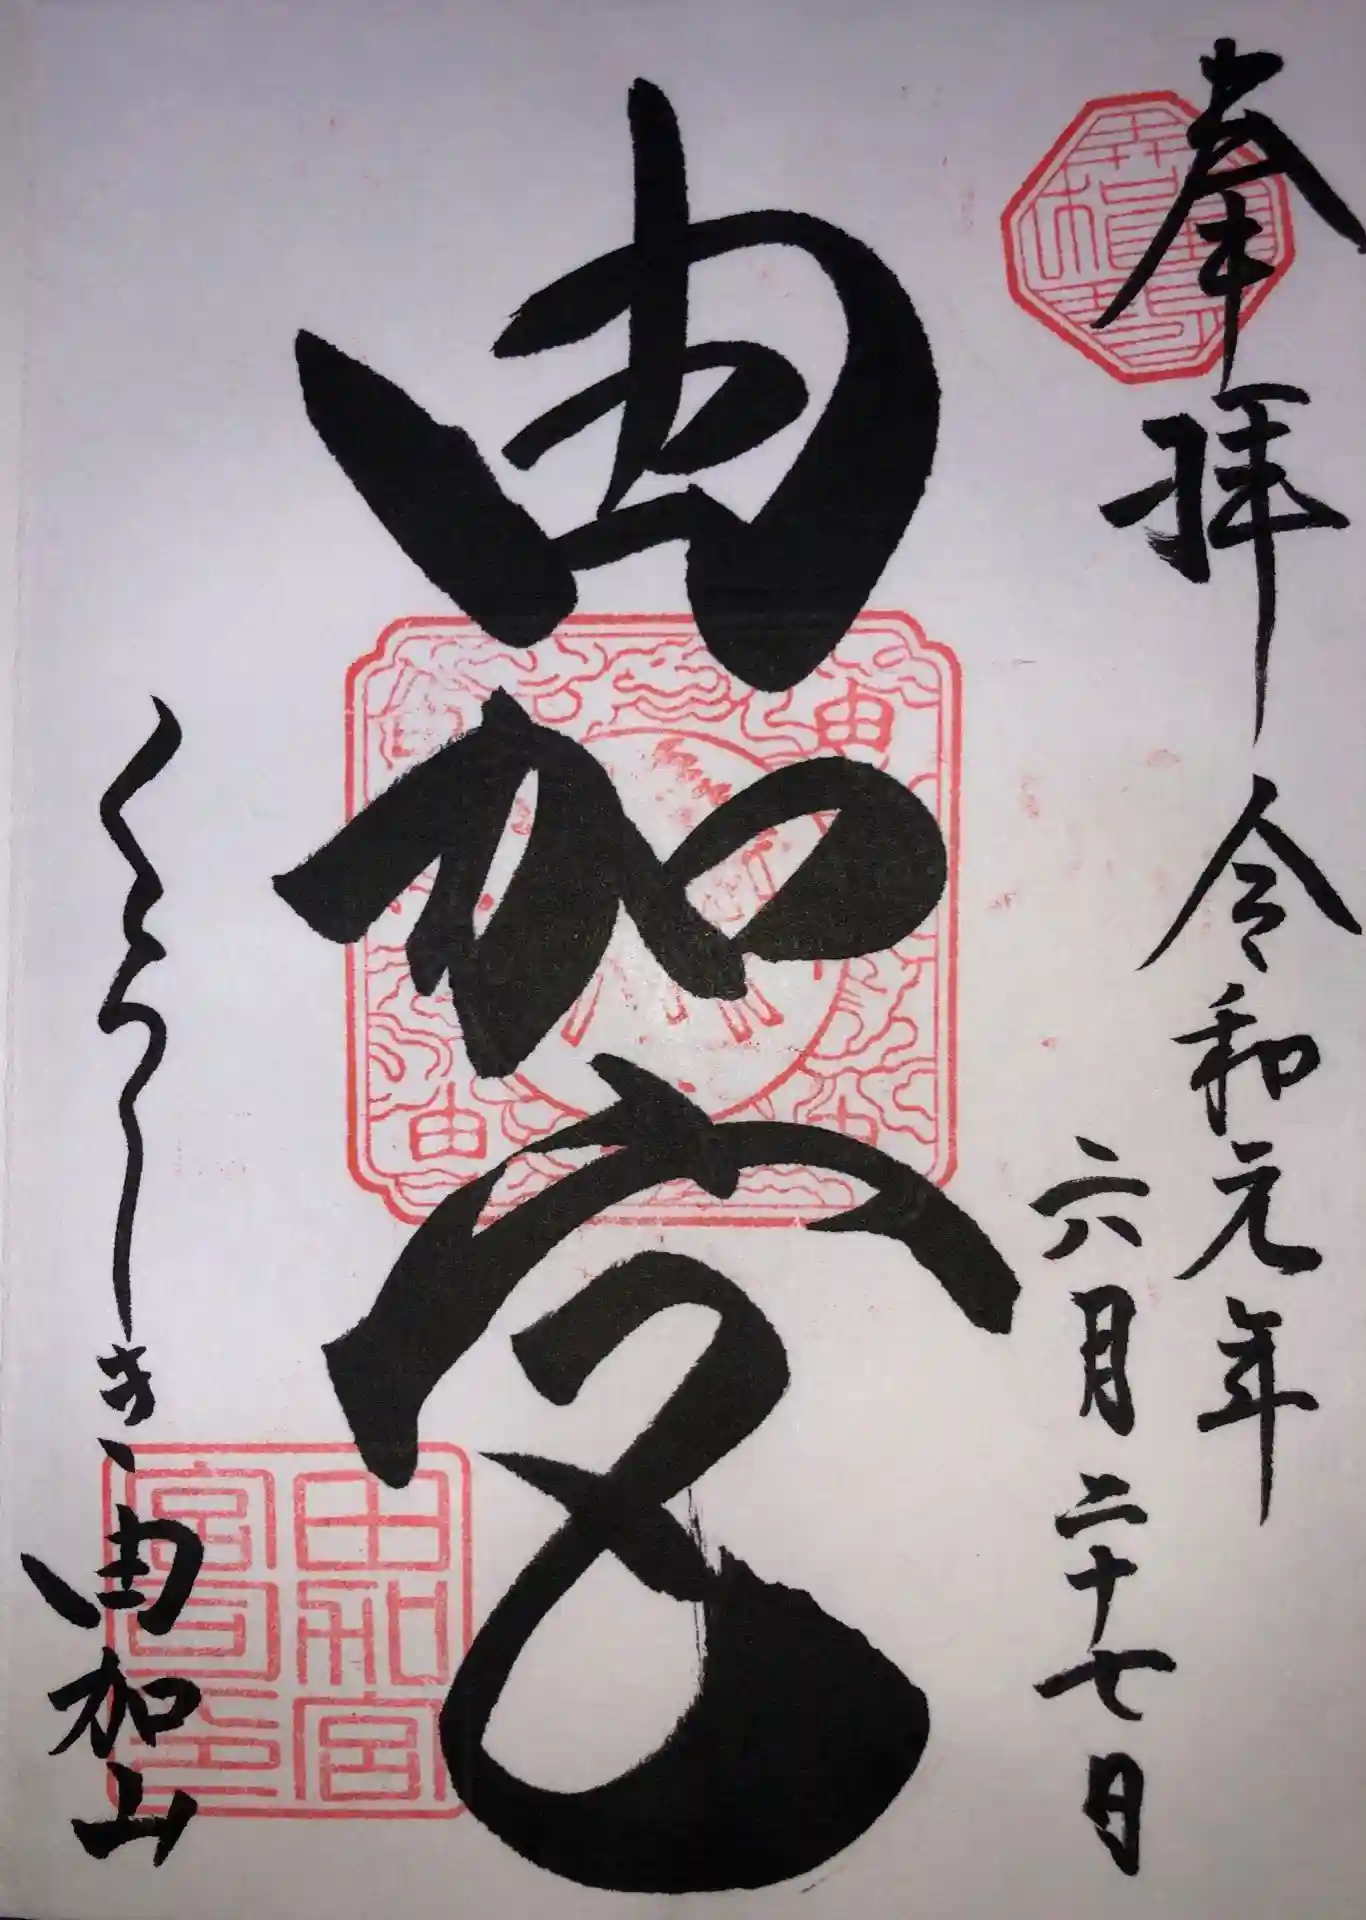 奉拝 令和元年
六月二十七日
由加宮
くらしき 由加山
由
由
由加宮
宮司印